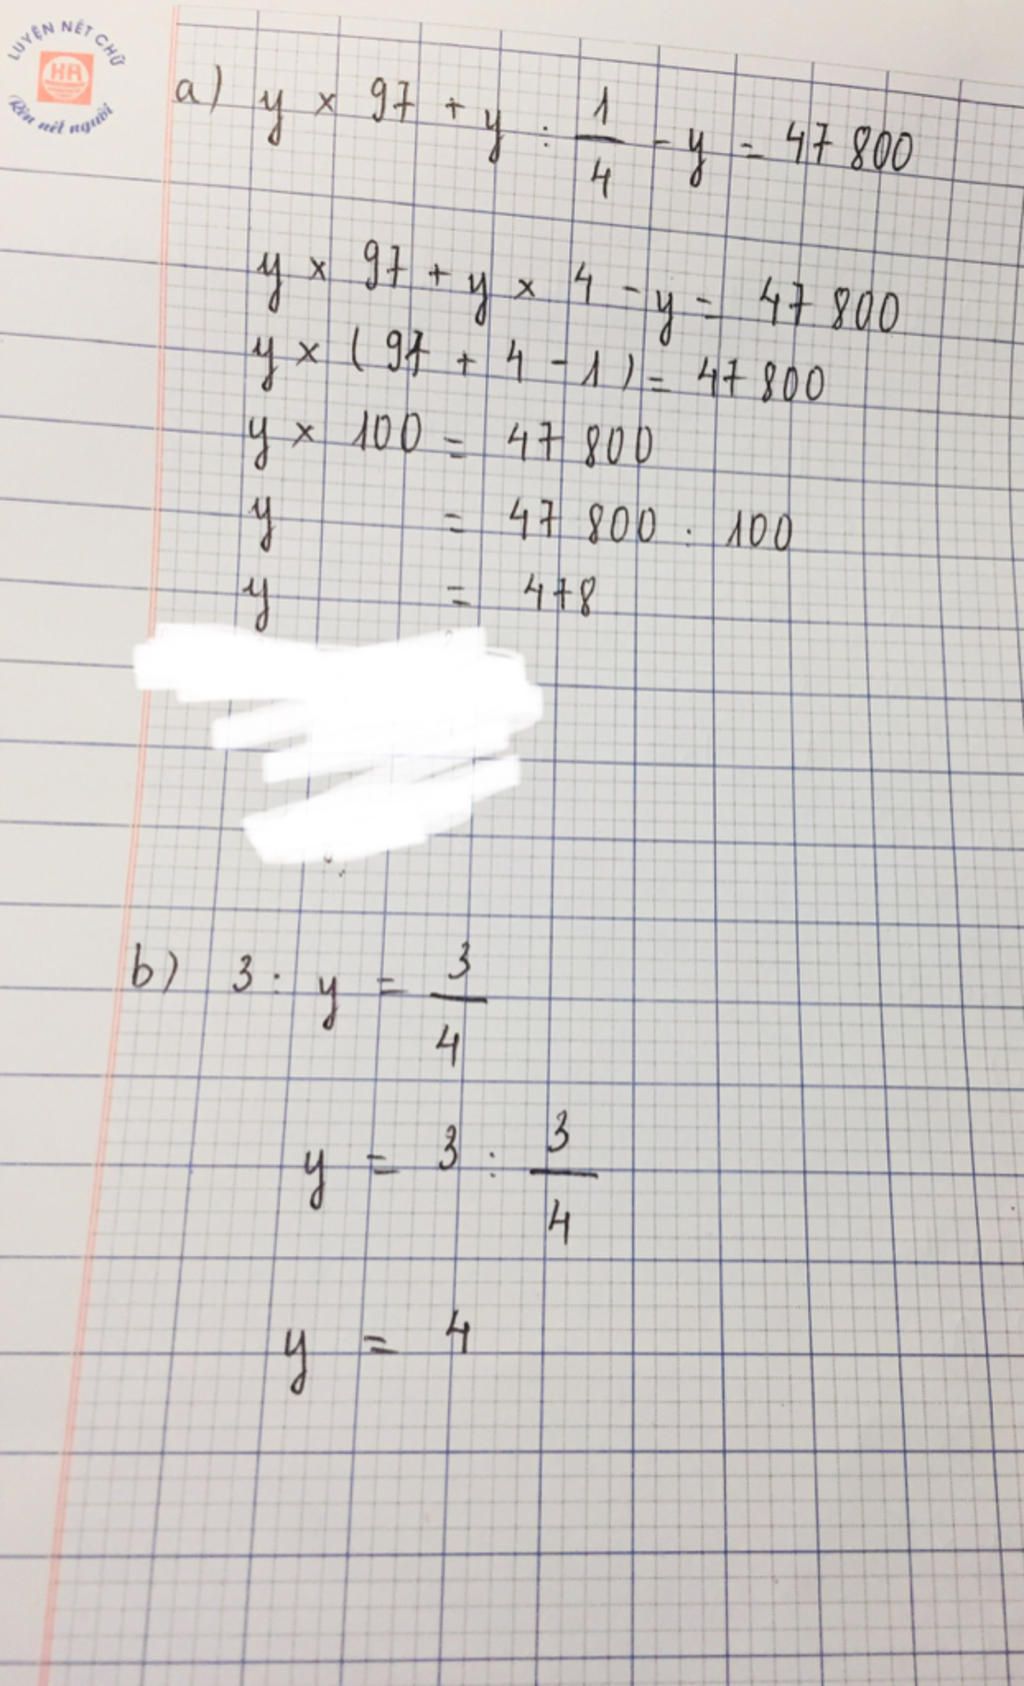 LUYỆN NÉT CHỮ
HA
Rèn nết người
a) y × 97 + y : 1/4 - y = 47 800
y × 97 + y × 4 - y = 47 800
y × ( 97 + 4 - 1 ) = 47 800
y × 100 = 47 800
y = 47 800 : 100
y = 478
b) 3 : y = 3/4
y = 3 : 3/4
y = 4